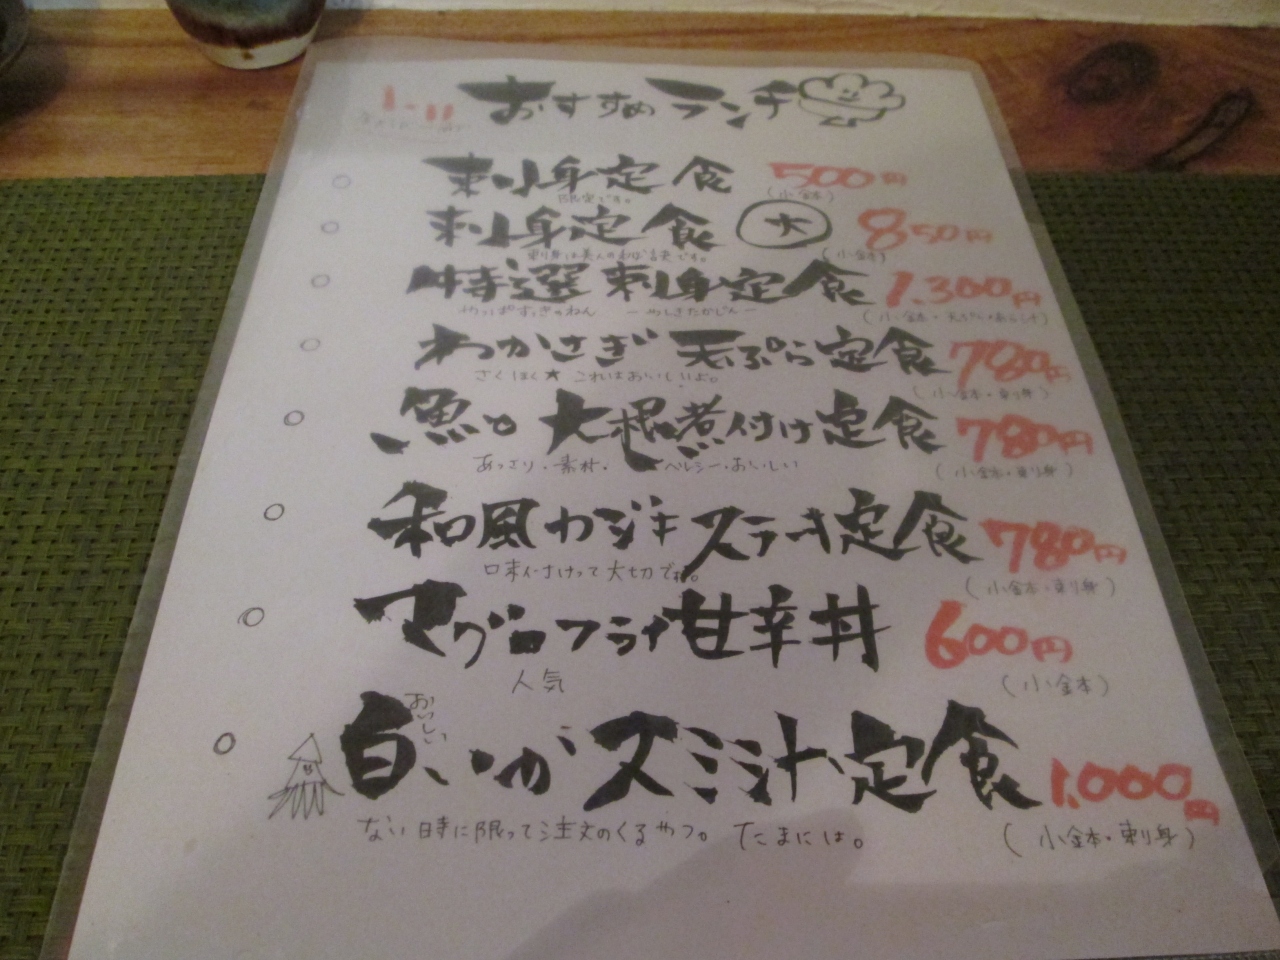 おすすめランチ
刺身定食 500円
限定です。 (小鉢)
刺身定食 大 850円
刺身は美人の秘訣です。 (小鉢)
特選刺身定食 1.300円
やっぱすっきゃねん －やしきたかじん－
(小鉢・
わかさぎ天ぷら定食 780円
さくほく★これはおいしいよ。 (小鉢・刺身)
魚と大根煮付け定食 780円
あっさり・素材・ヘルシー・おいしい (小鉢・刺身)
和風カジキステーキ定食 780円
味付けって大切です。 (小鉢・刺身)
マグロフライ甘辛丼 600円
人気 (小鉢)
おいしい
白いかスミ汁定食 1.000円
ない時に限って注文のくるやつ。 たまには。 (小鉢・刺身)